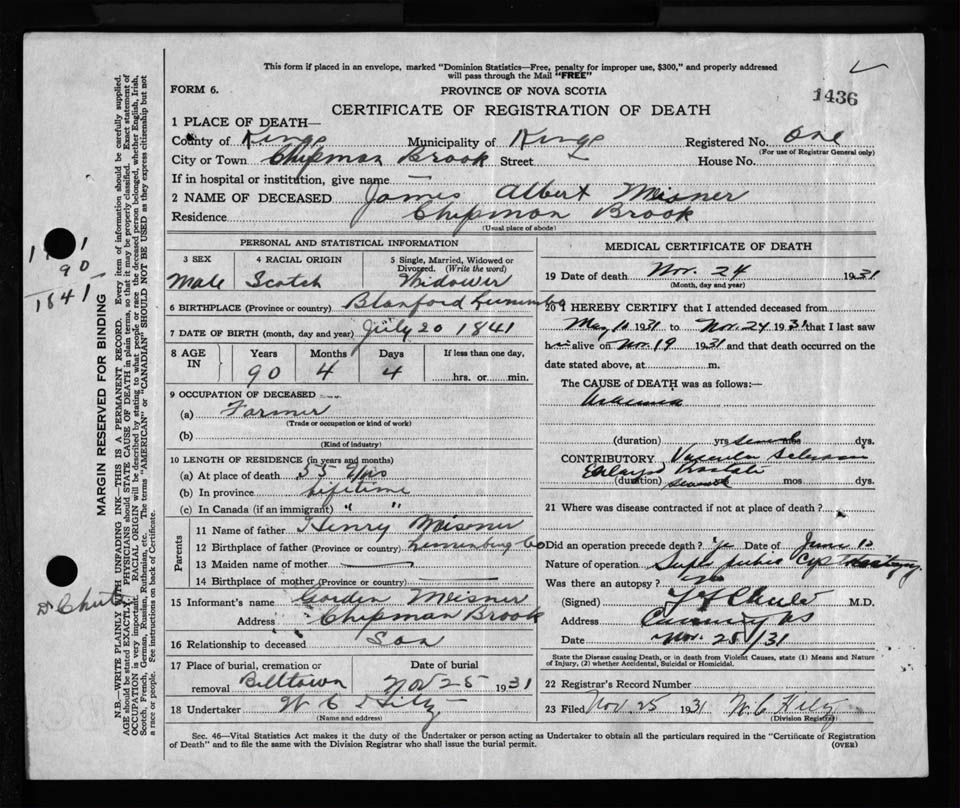 This form if placed in an envelope, marked "Dominion Statistics—Free, penalty for improper use, $300," and properly addressed
will pass through the Mail "FREE"
FORM 6.
PROVINCE OF NOVA SCOTIA
1436
CERTIFICATE OF REGISTRATION OF DEATH
1 PLACE OF DEATH—
County of Kings Municipality of Kings Registered No. One
(For use of Registrar General only)
City or Town Chipman Brook Street House No.
If in hospital or institution, give name —
2 NAME OF DECEASED James Albert Meisner
Residence Chipman Brook
(Usual place of abode)
PERSONAL AND STATISTICAL INFORMATION
3 SEX 4 RACIAL ORIGIN 5 Single, Married, Widowed or Divorced. (Write the word)
Male Scotch Widower
6 BIRTHPLACE (Province or country) Blanford
7 DATE OF BIRTH (month, day and year) July 20 1841
8 AGE IN Years Months Days If less than one day,
90 4 4 hrs. or min.
9 OCCUPATION OF DECEASED
(a) Farmer
(Trade or occupation or kind of work)
(b)
(Kind of industry)
10 LENGTH OF RESIDENCE (in years and months)
(a) At place of death 55 yrs
(b) In province Lifetime
(c) In Canada (if an immigrant) " "
Parents
11 Name of father Henry Meisner
12 Birthplace of father (Province or country) Lunenburg Co
13 Maiden name of mother —
14 Birthplace of mother (Province or country) —
15 Informant's name Gordon Meisner
Address Chipman Brook
16 Relationship to deceased Son
17 Place of burial, cremation or removal Billtown
Date of burial Nov 25 1931
18 Undertaker W C
(Name and address)
MEDICAL CERTIFICATE OF DEATH
19 Date of death Nov. 24 1931
(Month, day and year)
20 I HEREBY CERTIFY that I attended deceased from
May 1931 to Nov. 24 1931 that I last saw
him alive on Nov. 19 1931 and that death occurred on the
date stated above, at m.
The CAUSE OF DEATH was as follows:—
(duration) yrs mos dys.
CONTRIBUTORY Vascular
Enlarged Prostate
(duration) mos dys.
21 Where was disease contracted if not at place of death?
Did an operation precede death? Date of June
Nature of operation Supra pubic
Was there an autopsy? no
(Signed) M.D.
Address Canning NS
Date Nov. 25/31
State the Disease causing Death, or in death from Violent Causes, state (1) Means and Nature
of Injury, (2) whether Accidental, Suicidal or Homicidal.
22 Registrar's Record Number
23 Filed Nov. 25 1931 W. C.
(Division Registrar)
Sec. 46—Vital Statistics Act makes it the duty of the Undertaker or person acting as Undertaker to obtain all the particulars required in the "Certificate of Registration
of Death" and to file the same with the Division Registrar who shall issue the burial permit.
(OVER)
MARGIN RESERVED FOR BINDING
N.B.—WRITE PLAINLY WITH UNFADING INK—THIS IS A PERMANENT RECORD. Every item of information should be carefully supplied.
AGE should be stated EXACTLY. PHYSICIANS should STATE CAUSE OF DEATH in plain terms, so that it may be properly classified. Exact statement of
OCCUPATION is very important. RACIAL ORIGIN will be described by stating to what people or race the deceased person belonged, whether English, Irish,
Scotch, French, German, Russian, Ruthenian, etc. The terms "AMERICAN" or "CANADIAN" SHOULD NOT BE USED as they express citizenship but not
a race or people. See instructions on back of Certificate.
90
1841